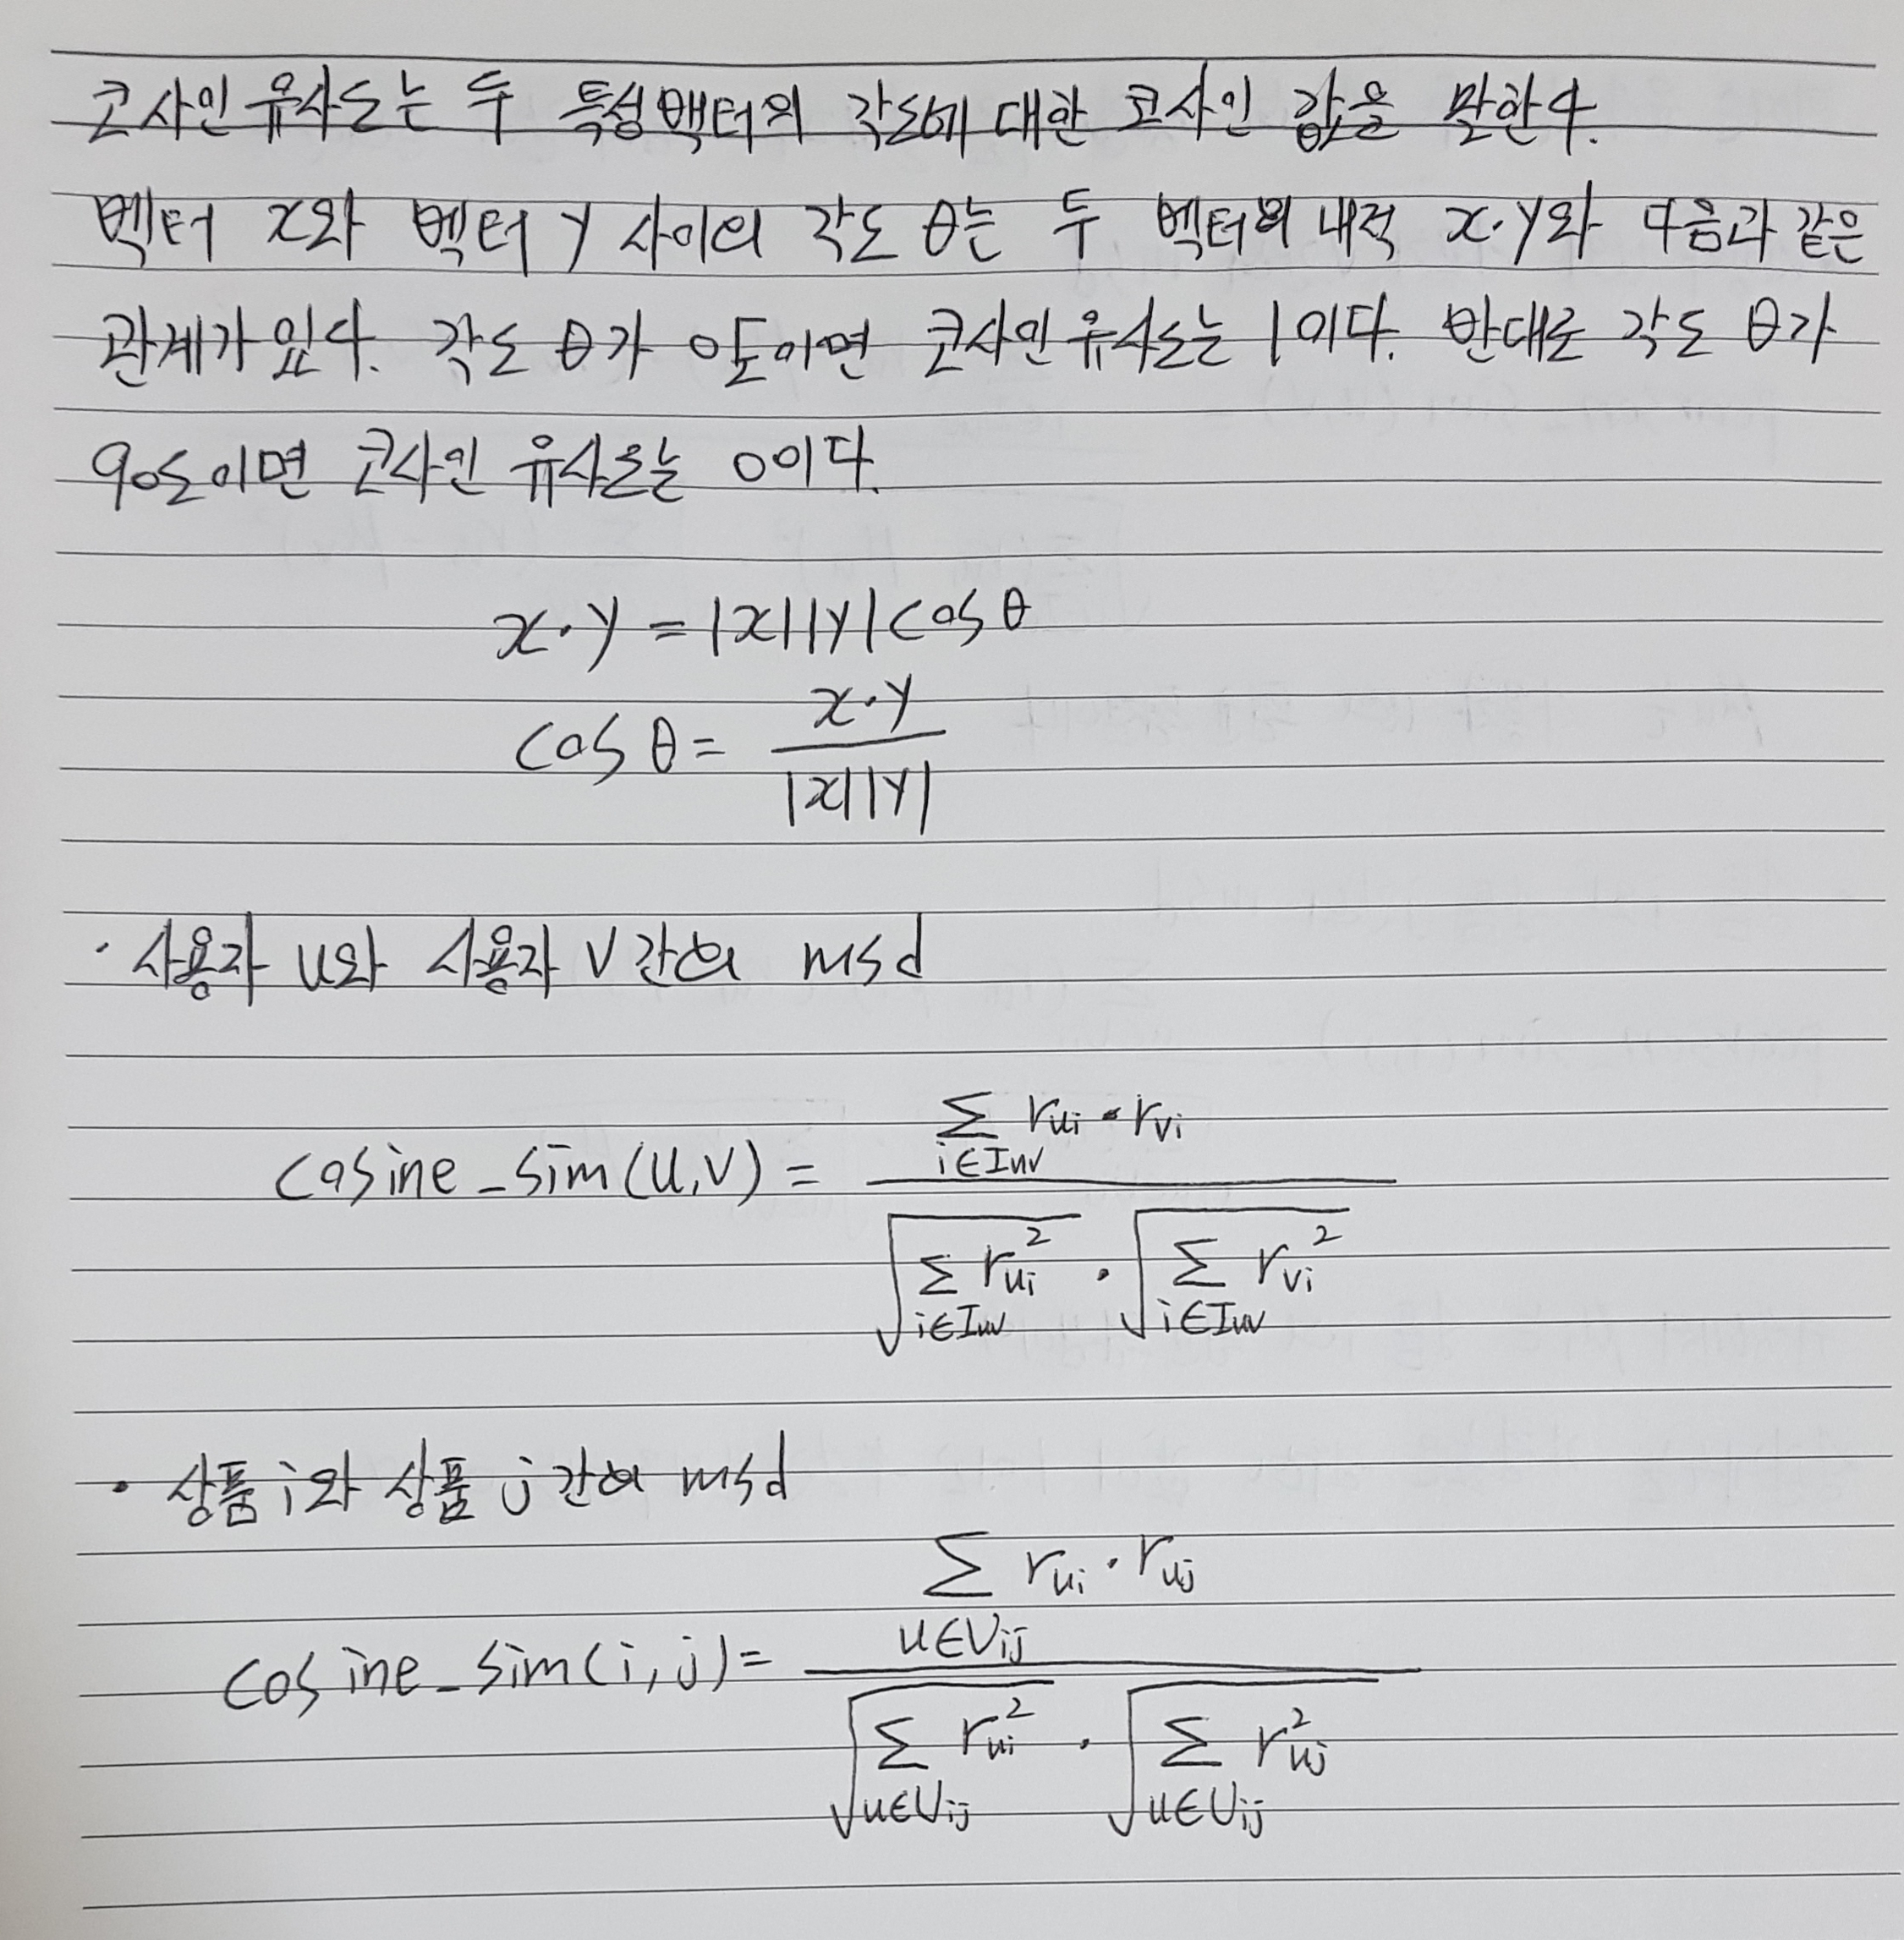 코사인 유사도는 두 특성벡터의 각도에 대한 코사인 값을 말한다.
벡터 x와 벡터 y 사이의 각도 θ는 두 벡터의 내적 x·y와 다음과 같은
관계가 있다. 각도 θ가 0도이면 코사인 유사도는 1이다. 반대로 각도 θ가
90도이면 코사인 유사도는 0이다.
x·y = |x||y|cosθ
cosθ = \frac{x·y}{|x||y|}
· 사용자 u와 사용자 v간의 msd
cosine_sim(u,v) = \frac{\sum_{i∈I_{uv}} r_{ui} · r_{vi}}{\sqrt{\sum_{i∈I_{uv}} r_{ui}^2} · \sqrt{\sum_{i∈I_{uv}} r_{vi}^2}}
· 상품 i와 상품 j간의 msd
cosine_sim(i,j) = \frac{\sum_{u∈U_{ij}} r_{ui} · r_{uj}}{\sqrt{\sum_{u∈U_{ij}} r_{ui}^2} · \sqrt{\sum_{u∈U_{ij}} r_{uj}^2}}